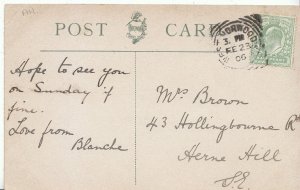 POST CARD
NORWOOD
3. PM
FE 23
06
Hope to see you
on Sunday if
fine.
Love from
Blanche
Mrs Brown
43 Hollingbourne Rd
Herne Hill
S.E.